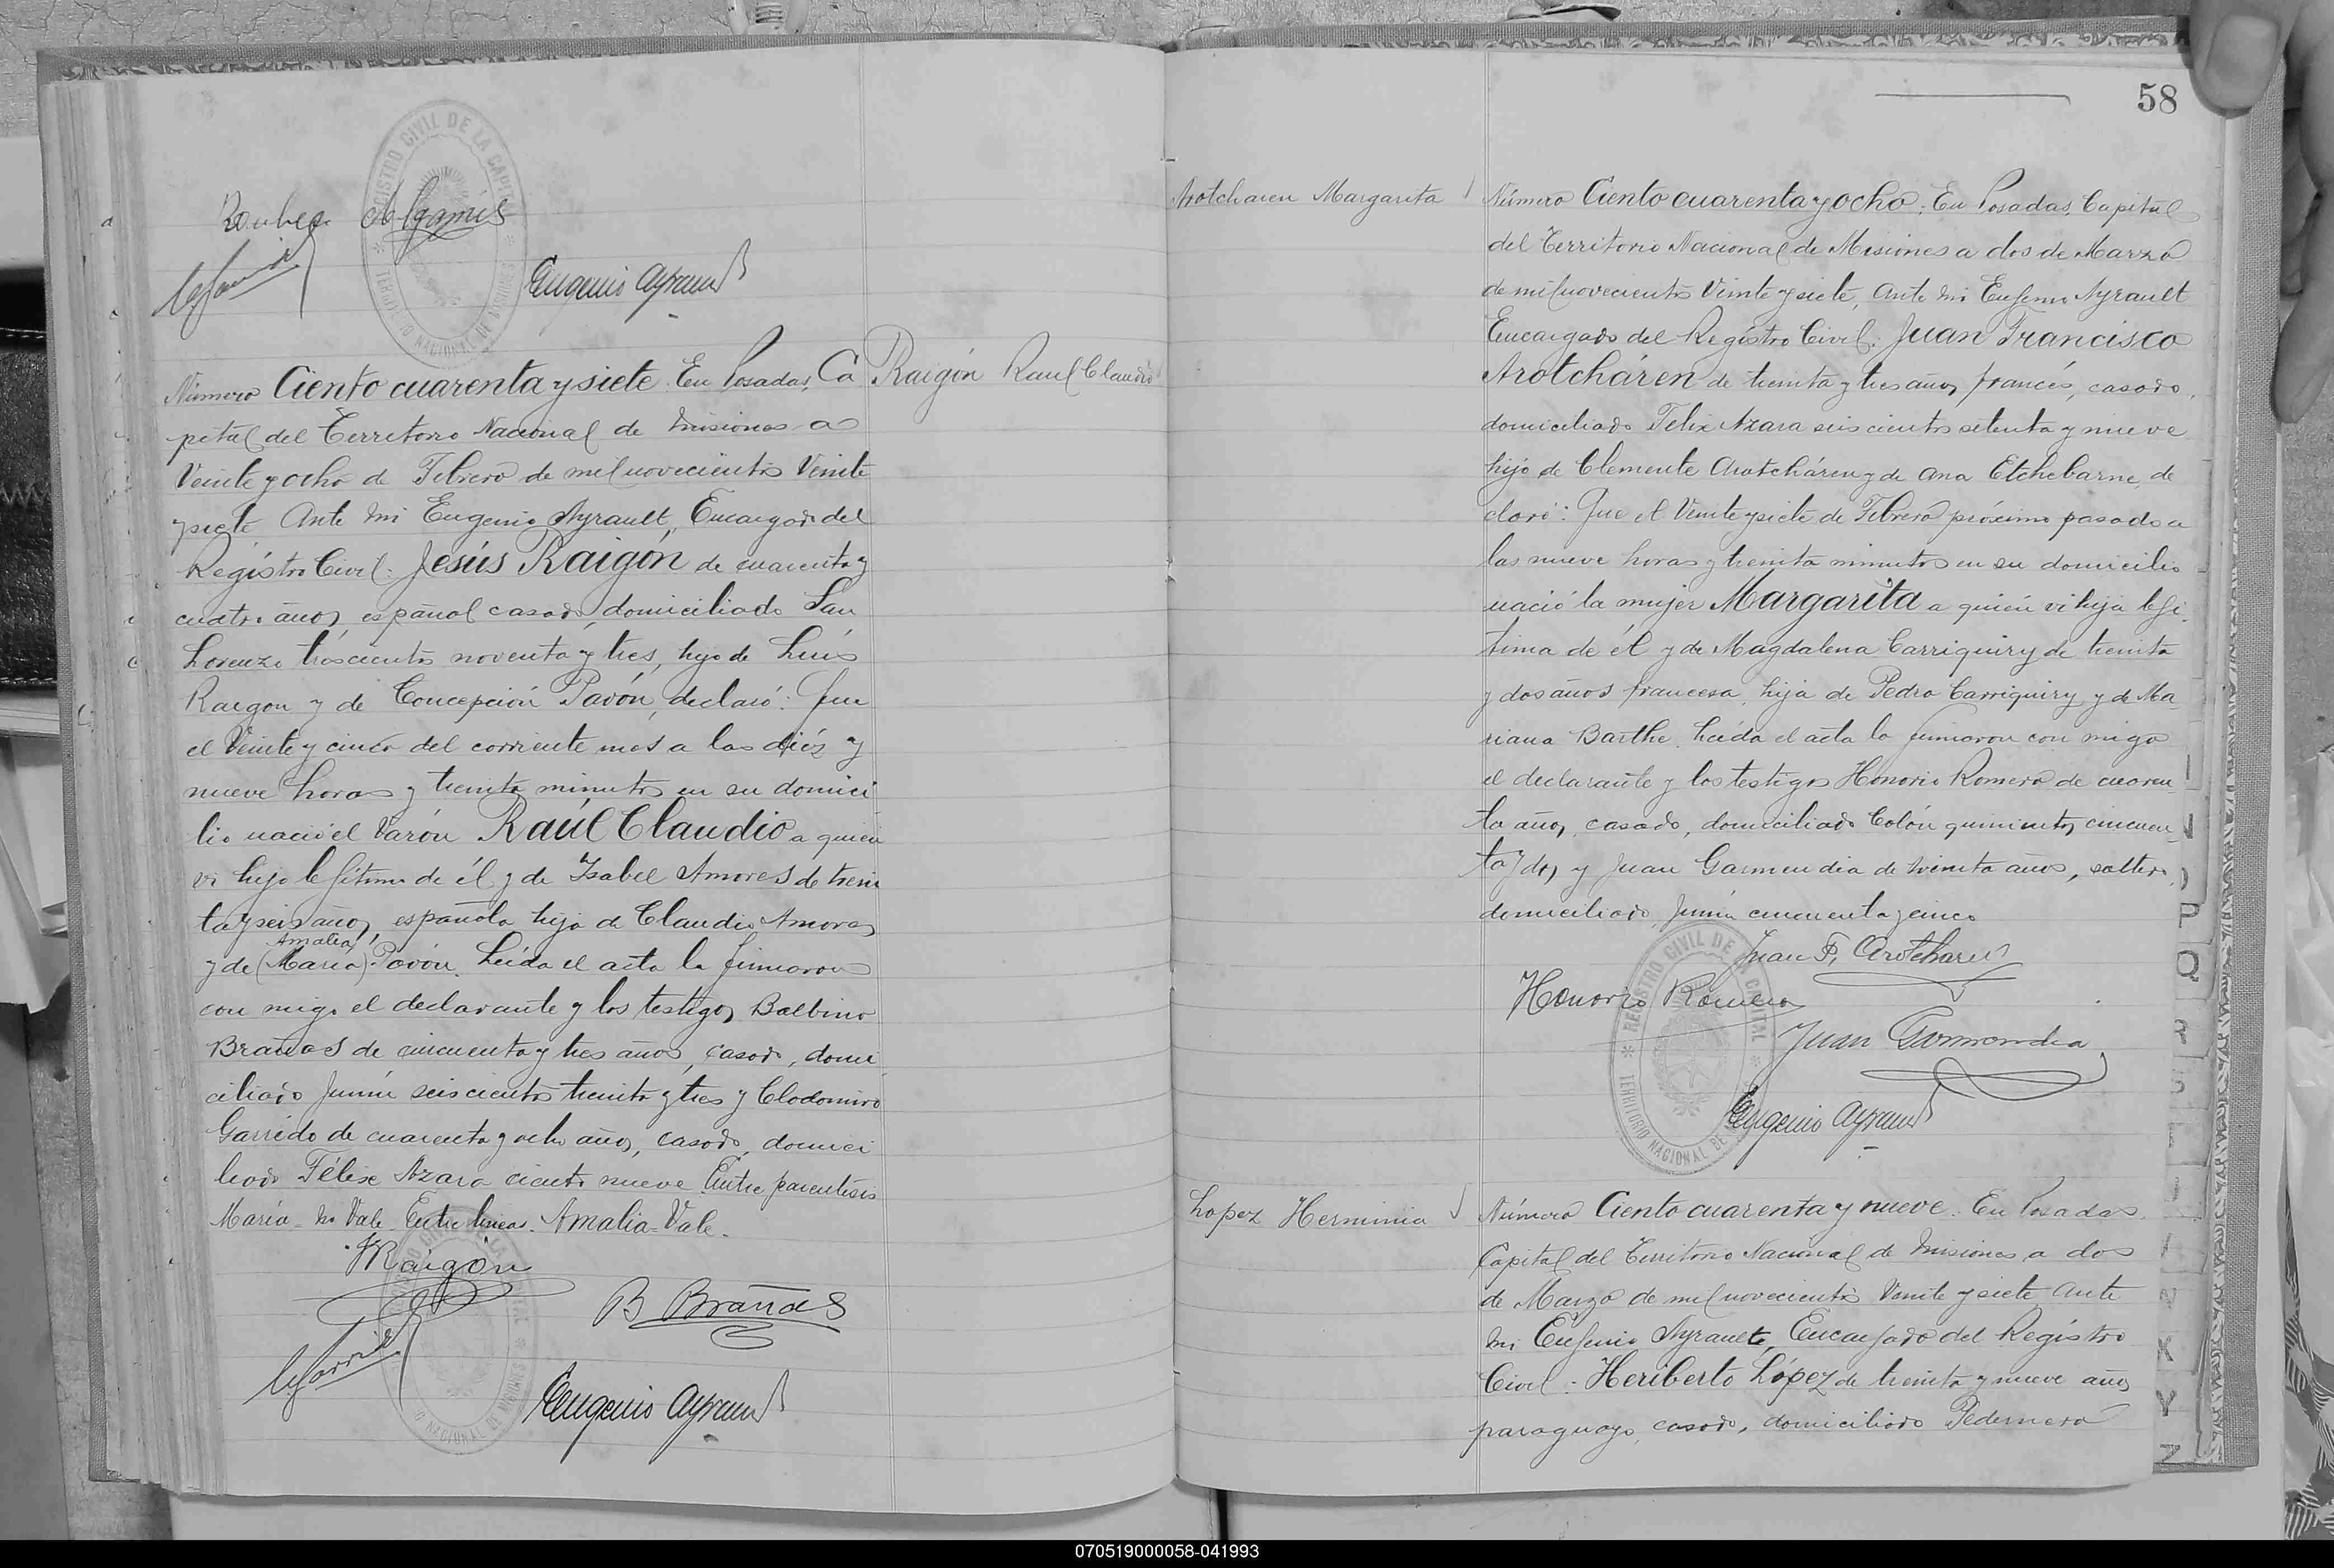 Eugenio Ayrault
Número Ciento cuarenta y siete. En Posadas, Ca
pital del Territorio Nacional de Misiones a
Veinte y ocho de Febrero de mil novecientos Veinte
y siete, Ante mi Eugenio Ayrault, Encargado del
Registro Civil: Jesús Raigón de cuarenta y
cuatro años, español casado, domiciliado San
Lorenzo trescientos noventa y tres, hijo de Luís
Raigon y de Concepción Pavón, declaró: Que
el Veinte y cinco del corriente mes a las diéz y
nueve horas y treinta minutos en su domici
lio nació el Varón Raúl Claudio a quien
vi hijo legítimo de él y de Isabel Amores de trein
ta y seis años, española hija de Claudio Amores
Amalia
y de (María) Pavón. Leída el acta la firmaron
con migo el declarante y los testigos Balbino
Brañas de cincuenta y tres años, casado, domi
ciliado Junín seiscientos treinta y tres y Clodomiro
Garrido de cuarenta y ocho años, casado, domici
liado Félix Azara ciento nueve. Entre parentésis
María - No Vale - Entre lineas - Amalia - Vale -
JRaigón
B Brañas
Eugenio Ayrault
Raigón Raul Claudio
REGISTRO CIVIL DE LA CAPITAL
TERRITORIO NACIONAL DE MISIONES
58
Arotcharen Margarita
Número Ciento cuarenta y ocho: En Posadas, Capital
del Territorio Nacional de Misiones a dos de Marzo
de mil novecientos Veinte y siete, Ante mi Eugenio Ayrault
Encargado del Registro Civil: Juan Francisco
Arotcháren de treinta y tres años, francés, casado,
domiciliado Felix Azara seiscientos setenta y nueve
hijo de Clemente Arotcháren y de Ana Etchebarne, de
claró: Que el Veinte y siete de Febrero próximo pasado a
las nueve horas y treinta minutos en su domicilio
nació la mujer Margarita a quién vi hija legí
tima de él y de Magdalena Carriquiry de treinta
y dos años francesa, hija de Pedro Carriquiry y de Ma
riana Barthe. Leída el acta la firmaron con migo
el declarante y los testigos Honorio Romero de cuaren
ta años, casado, domiciliado Colón quinientos cincuen
ta y dos y Juan Garmendia de treinta años, soltero,
domiciliado Junín cincuenta y cinco
Juan F. Arotcharen
Honorio Romero
Juan Garmendia
Eugenio Ayrault
REGISTRO CIVIL DE LA CAPITAL
TERRITORIO NACIONAL DE MISIONES
Lopez Herminia
Número Ciento cuarenta y nueve. En Posadas,
Capital del Territorio Nacional de Misiones a dos
de Marzo de mil novecientos Veinte y siete Ante
mi Eugenio Ayrault, Encargado del Registro
Civil: Heriberto López de treinta y nueve años
paraguayo, casado, domiciliado Pedernera
P
Q
R
S
N
K
Y
Z
070519000058-041993